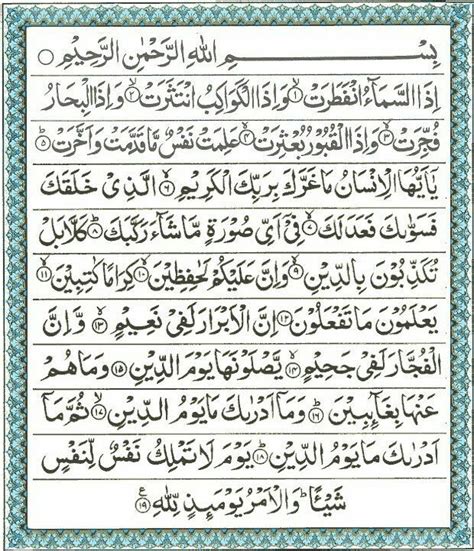 بِسْـــــمِ اللهِ الرَّحْمٰنِ الرَّحِيْمِ ○
اِذَا السَّمَآءُ انْفَطَرَتْ ۙ﴿۱﴾ وَاِذَا الْكَوَاكِبُ انْتَثَرَتْ ۙ﴿۲﴾ وَاِذَا الْبِحَارُ
فُجِّرَتْ ۙ﴿۳﴾ وَاِذَا الْقُبُوْرُ بُعْثِرَتْ ۙ﴿۴﴾ عَلِمَتْ نَفْسٌ مَّا قَدَّمَتْ وَاَخَّرَتْ ؕ﴿۵﴾
يٰۤاَيُّهَا الْاِنْسَانُ مَا غَرَّكَ بِرَبِّكَ الْكَرِيْمِ ۙ﴿۶﴾ الَّذِىْ خَلَقَكَ
فَسَوّٰىكَ فَعَدَلَكَ ۙ﴿۷﴾ فِىْۤ اَىِّ صُوْرَةٍ مَّا شَآءَ رَكَّبَكَ ؕ﴿۸﴾ كَلَّا بَلْ
تُكَذِّبُوْنَ بِالدِّيْنِ ۙ﴿۹﴾ وَاِنَّ عَلَيْكُمْ لَحٰفِظِيْنَ ۙ﴿۱۰﴾ كِرَامًا كٰتِبِيْنَ ۙ﴿۱۱﴾
يَعْلَمُوْنَ مَا تَفْعَلُوْنَ ﴿۱۲﴾ اِنَّ الْاَبْرَارَ لَفِىْ نَعِيْمٍ ۚ﴿۱۳﴾ وَّاِنَّ
الْفُجَّارَ لَفِىْ جَحِيْمٍ ۖ﴿۱۴﴾ يَّصْلَوْنَهَا يَوْمَ الدِّيْنِ ﴿۱۵﴾ وَمَا هُمْ
عَنْهَا بِغَآئِبِيْنَ ؕ﴿۱۶﴾ وَمَاۤ اَدْرٰىكَ مَا يَوْمُ الدِّيْنِ ۙ﴿۱۷﴾ ثُمَّ مَاۤ
اَدْرٰىكَ مَا يَوْمُ الدِّيْنِ ؕ﴿۱۸﴾ يَوْمَ لَا تَمْلِكُ نَفْسٌ لِّنَفْسٍ
شَيْـًٔا ؕ وَالْاَمْرُ يَوْمَئِذٍ لِّلّٰهِ ﴿۱۹﴾ ع